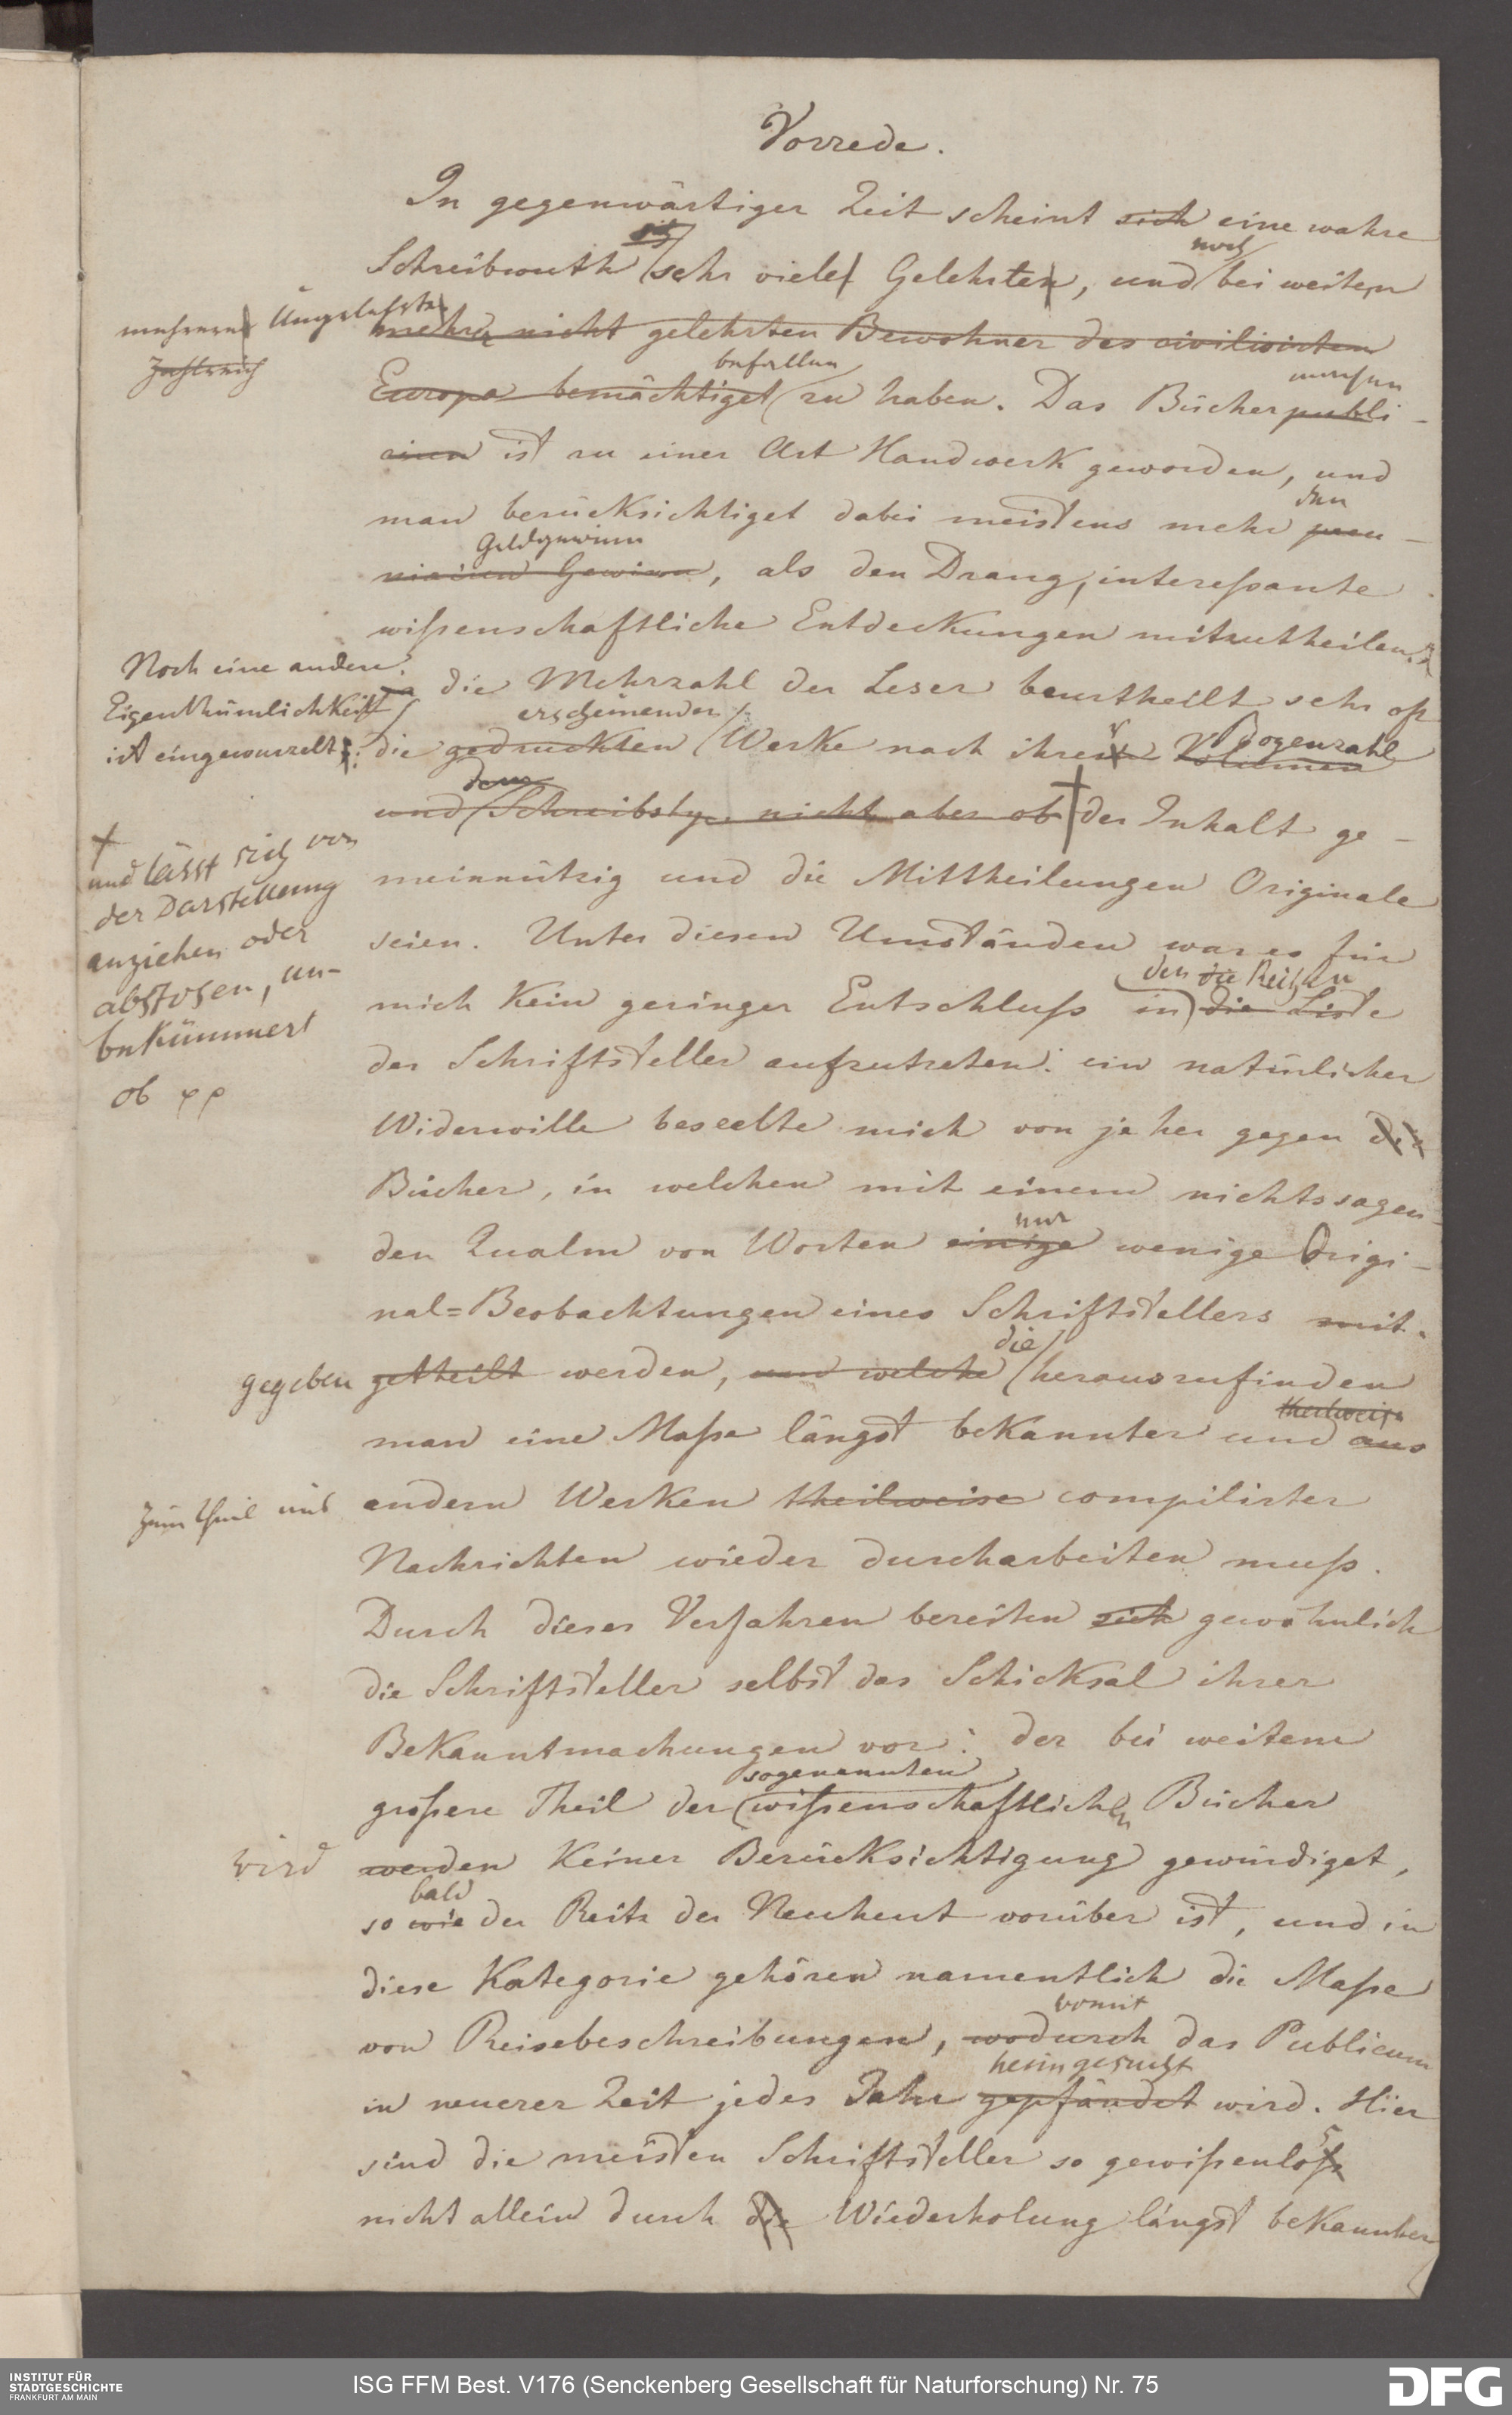 Vorrede.
In gegenwärtiger Zeit scheint sich eine wahre
noch
Schreibwuth sehr viele Gelehrten, und bei weitem
mehrere Ungelehrte
mehr nicht gelehrten Bewohner des civilisirten
Zahlreich
befallen
Europa bemächtiget zu haben. Das Bücher publi-
ciren ist zu einer Art Handwerk geworden, und
den
man berücksichtiget dabei meistens mehr pecu-
Geldgewinn
niairen Gewinn, als den Drang, interessante
wissenschaftliche Entdeckungen mitzutheilen.
Noch eine andere
Eigenthümlichkeit
ist eingewurzelt:
die Mehrzahl der Leser beurtheilt sehr oft
erscheinenden
Bogenzahl
die gedruckten Werke nach ihrer Volumen
dem
und Schreibstyl nicht aber ob der Inhalt ge-
†
und lässt sich von
der Darstellung
anziehen oder
abstosen, un-
bekümmert
ob pp
meinnützig und die Mittheilungen Originale
seien. Unter diesen Umständen war es für
den die Reihen
mich kein geringer Entschluß in die Liste
der Schriftsteller aufzutreten: ein natürlicher
Widerwille beseelte mich von jeher gegen die
Bücher, in welchen mit einem nichtssagen-
nur
den Qualm von Worten einige wenige Origi-
nal=Beobachtungen eines Schriftstellers mit-
die
gegeben getheilt werden, und welche herauszufinden
theilweise
man eine Maße längst bekannter und aus
zum Theil aus andern Werken theilweise compilirter
Nachrichten wieder durcharbeiten muß.
Durch dieses Verfahren bereiten sich gewöhnlich
die Schriftsteller selbst das Schicksal ihrer
Bekanntmachungen vor: der bei weitem
sogenannten
großere Theil der wißenschaftlichen Bücher
wird werden keiner Berücksichtigung gewürdiget,
bald
so wie der Reitz der Neuheit vorüber ist, und in
diese Kategorie gehören namentlich die Maße
womit
von Reisebeschreibungen, wodurch das Publicum
heimgesucht
in neuerer Zeit jedes Jahr gepfändet wird. Hier
sind die meisten Schriftsteller so gewißenlos
nicht allein durch die Wiederholung längst bekannter
INSTITUT FÜR
STADTGESCHICHTE
FRANKFURT AM MAIN
ISG FFM Best. V176 (Senckenberg Gesellschaft für Naturforschung) Nr. 75
DFG